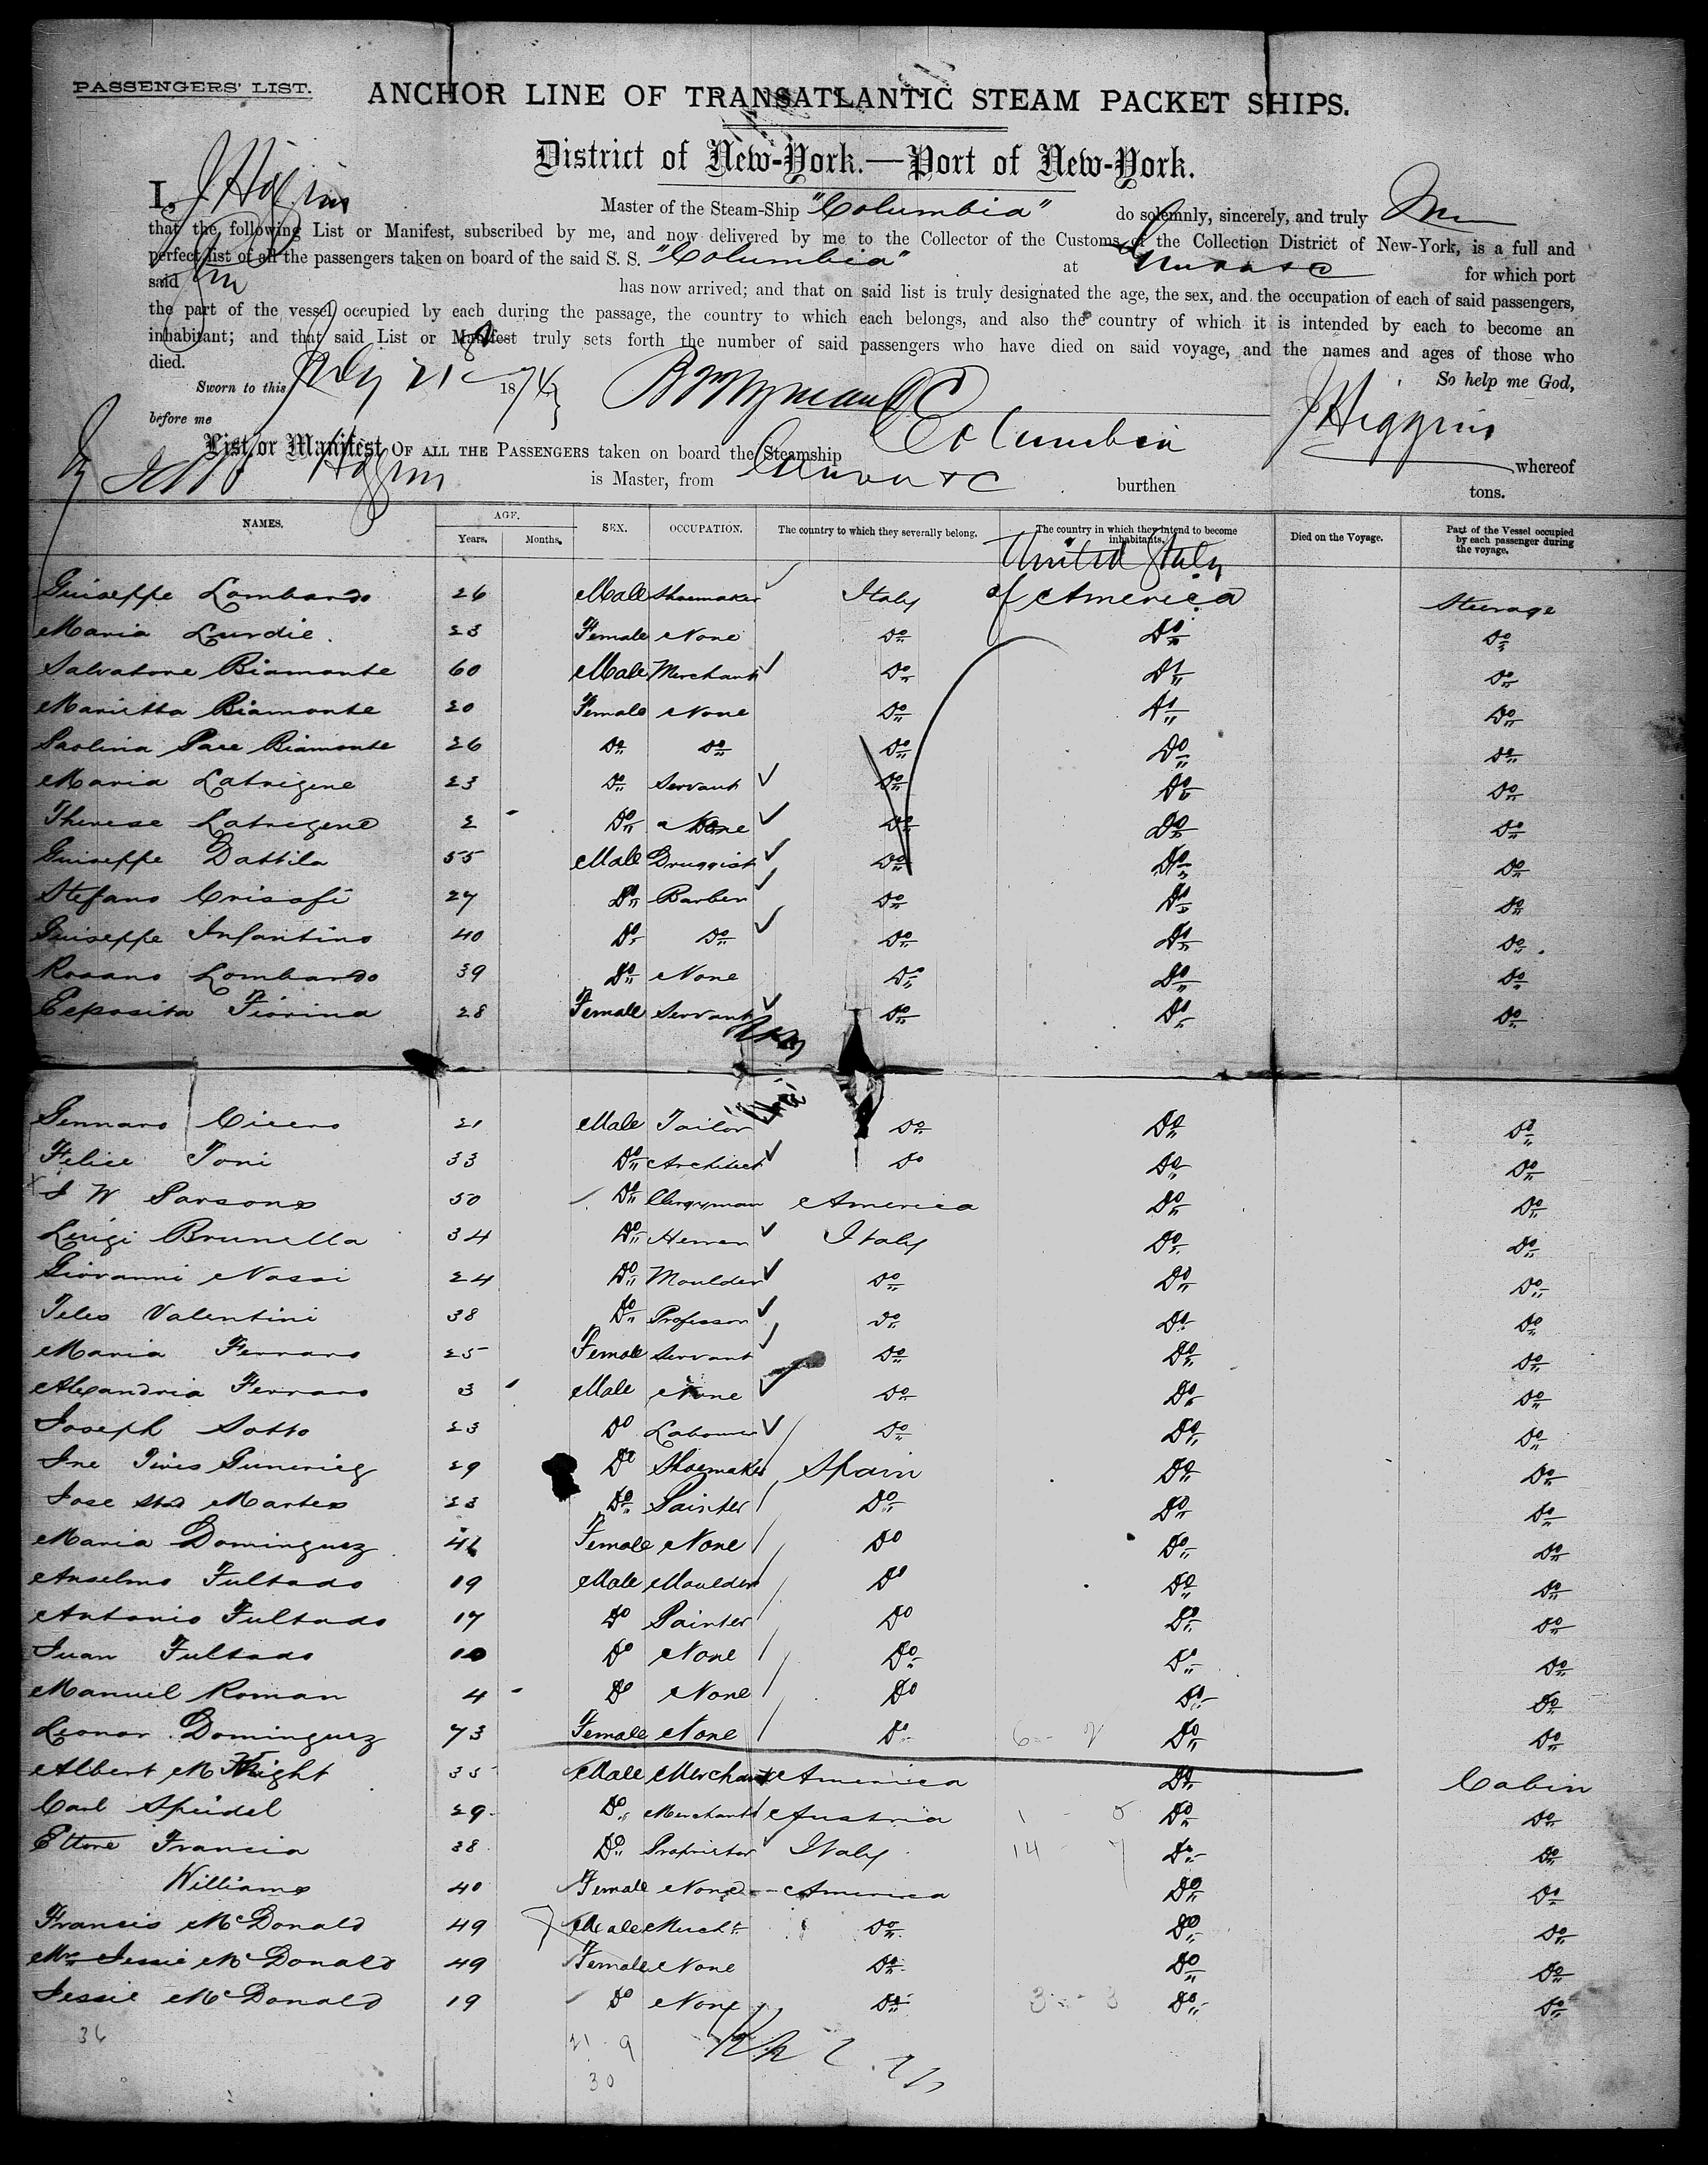 PASSENGERS' LIST.
ANCHOR LINE OF TRANSATLANTIC STEAM PACKET SHIPS.
District of New-York.—Port of New-York.
I, J Higgins Master of the Steam-Ship "Columbia" do solemnly, sincerely, and truly
that the following List or Manifest, subscribed by me, and now delivered by me to the Collector of the Customs of the Collection District of New-York, is a full and
perfect list of all the passengers taken on board of the said S. S. "Columbia" at for which port
said has now arrived; and that on said list is truly designated the age, the sex, and the occupation of each of said passengers,
the part of the vessel occupied by each during the passage, the country to which each belongs, and also the country of which it is intended by each to become an
inhabitant; and that said List or Manifest truly sets forth the number of said passengers who have died on said voyage, and the names and ages of those who
died.
So help me God,
Sworn to this July 21 1874
before me
J Higgins
List or Manifest OF ALL THE PASSENGERS taken on board the Steamship Columbia whereof
Higgins is Master, from burthen tons.
NAMES. AGE. Years. Months. SEX. OCCUPATION. The country to which they severally belong. The country in which they intend to become inhabitants. Died on the Voyage. Part of the Vessel occupied by each passenger during the voyage.
United States
Guiseppe Lombardo 26 Male Shoemaker Italy of America Steerage
Maria Lurdie 23 Female None Do Do Do
Salvatore Biamonte 60 Male Merchant Do Do Do
Marietta Biamonte 20 Female None Do Do Do
Paolina Pace Biamonte 26 Do Do Do Do Do
Maria Latrigene 23 Do Servant Do Do Do
Therese Latregene 2 Do None Do Do Do
Guiseppe Dattila 55 Male Druggist Do Do Do
Stefano Crisafi 27 Do Barber Do Do Do
Guiseppe Infantino 40 Do Do Do Do Do
Rosano Lombardo 39 Do None Do Do Do
Esposita Fiorina 28 Female Servant Do Do Do
Gennaro Cicero 21 Male Tailor Do Do Do
Felice Toni 33 Do Architect Do Do Do
J W Parsons 50 Do Clergyman America Do Do
Luigi Brunella 34 Do Italy Do Do
Giovanni Nassi 24 Do Moulder Do Do Do
Teles Valentini 38 Do Professor Do Do Do
Maria Ferraro 25 Female Servant Do Do Do
Alexandria Ferraro 3 Male None Do Do Do
Joseph Sotto 23 Do Labourer Do Do Do
29 Do Shoemaker Spain Do Do
Jose Martes 23 Do Painter Do Do Do
Maria Dominguez Female None Do Do Do
Anselmo Fultado 19 Male Moulder Do Do Do
Antonio Fultado 17 Do Painter Do Do Do
Juan Fultado 10 Do None Do Do Do
Manuel Roman 4 Do None Do Do Do
Leonor Dominguez 73 Female None Do Do Do
Albert McKnight 35 Male Merchant America Do Cabin
Carl Speidel 29 Do Merchant Austria Do Do
Ettore Francia 38 Do Proprietor Italy 14 - 7 Do Do
Williams 40 Female None America Do Do
Francis McDonald 49 Male Mercht Do Do Do
Mrs Jessie McDonald 49 Female None Do Do Do
Jessie McDonald 19 Do None Do 3 - 3 Do Do
36 21 - 9
30